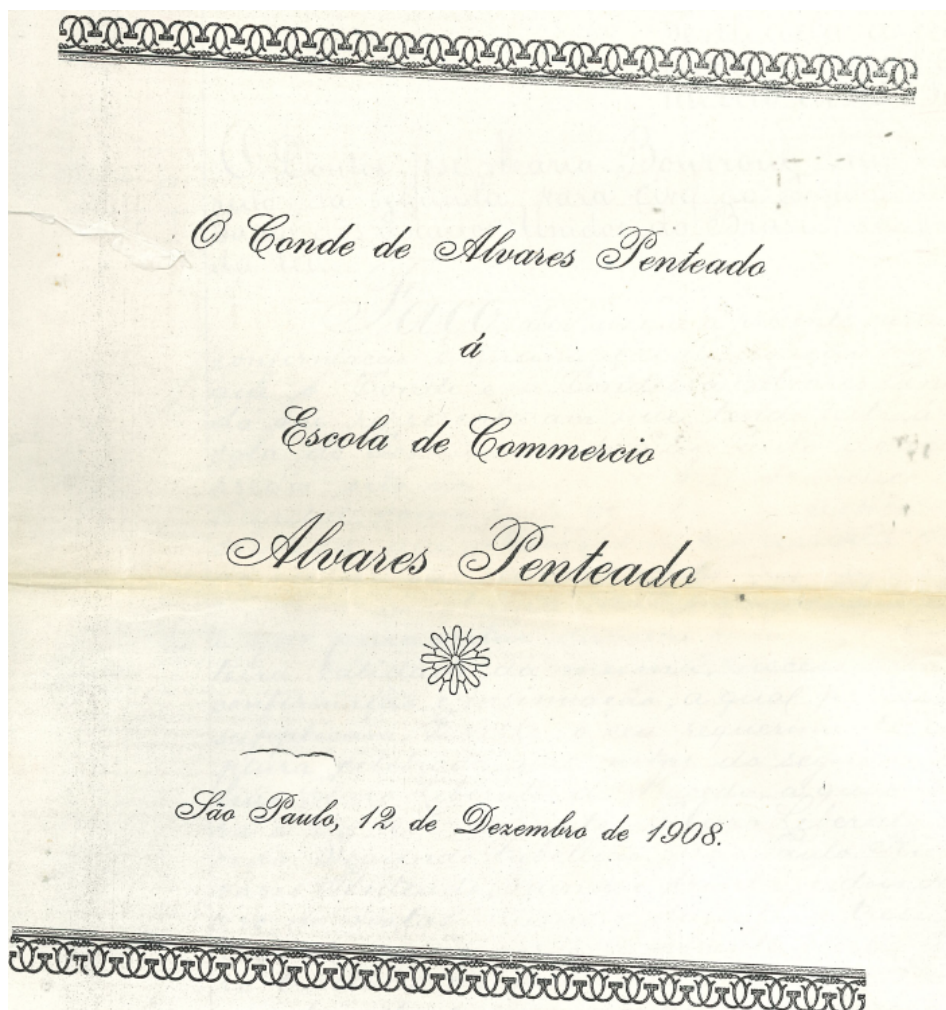 O Conde de Alvares Penteado
á
Escola de Commercio
Alvares Penteado
São Paulo, 12 de Dezembro de 1908.